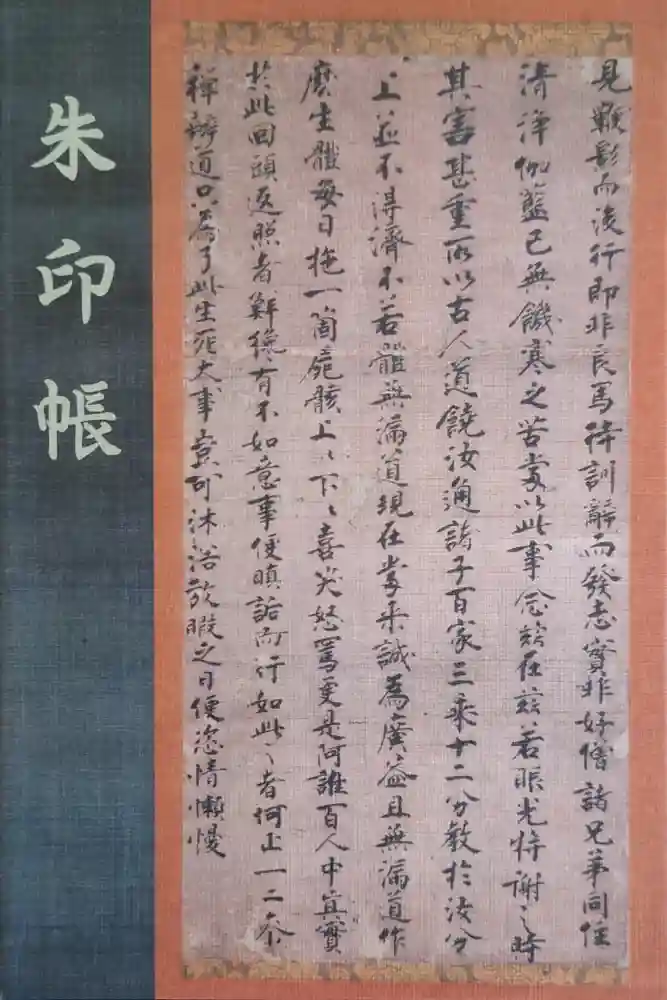 朱印帳
見鞭影而後行即非良馬待訓辭而發志實非好僧諸兄弟同住
清淨伽藍已無饑寒之苦當以此事念茲在茲若眼光将謝之時
其害甚重所以古人道饒汝通諸子百家三乘十二分教於汝分
上並不得濟不若體無漏道現在當来誠為廣益且無漏道作
麼生體每日拖一箇屍骸上〻下〻喜笑怒罵更是阿誰百人中真實
於此回頭返照者鮮纔有不如意事便瞋詬而行如此之者何止一二參
禪辨道只為了此生死大事豈可沐浴放暇之日便恣情懶慢